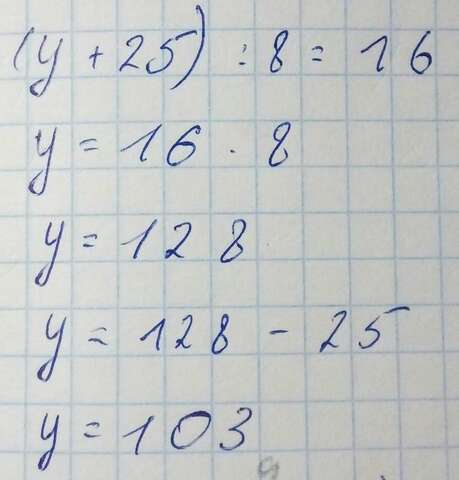 (y + 25) : 8 = 16
y = 16 · 8
y = 128
y = 128 - 25
y = 103